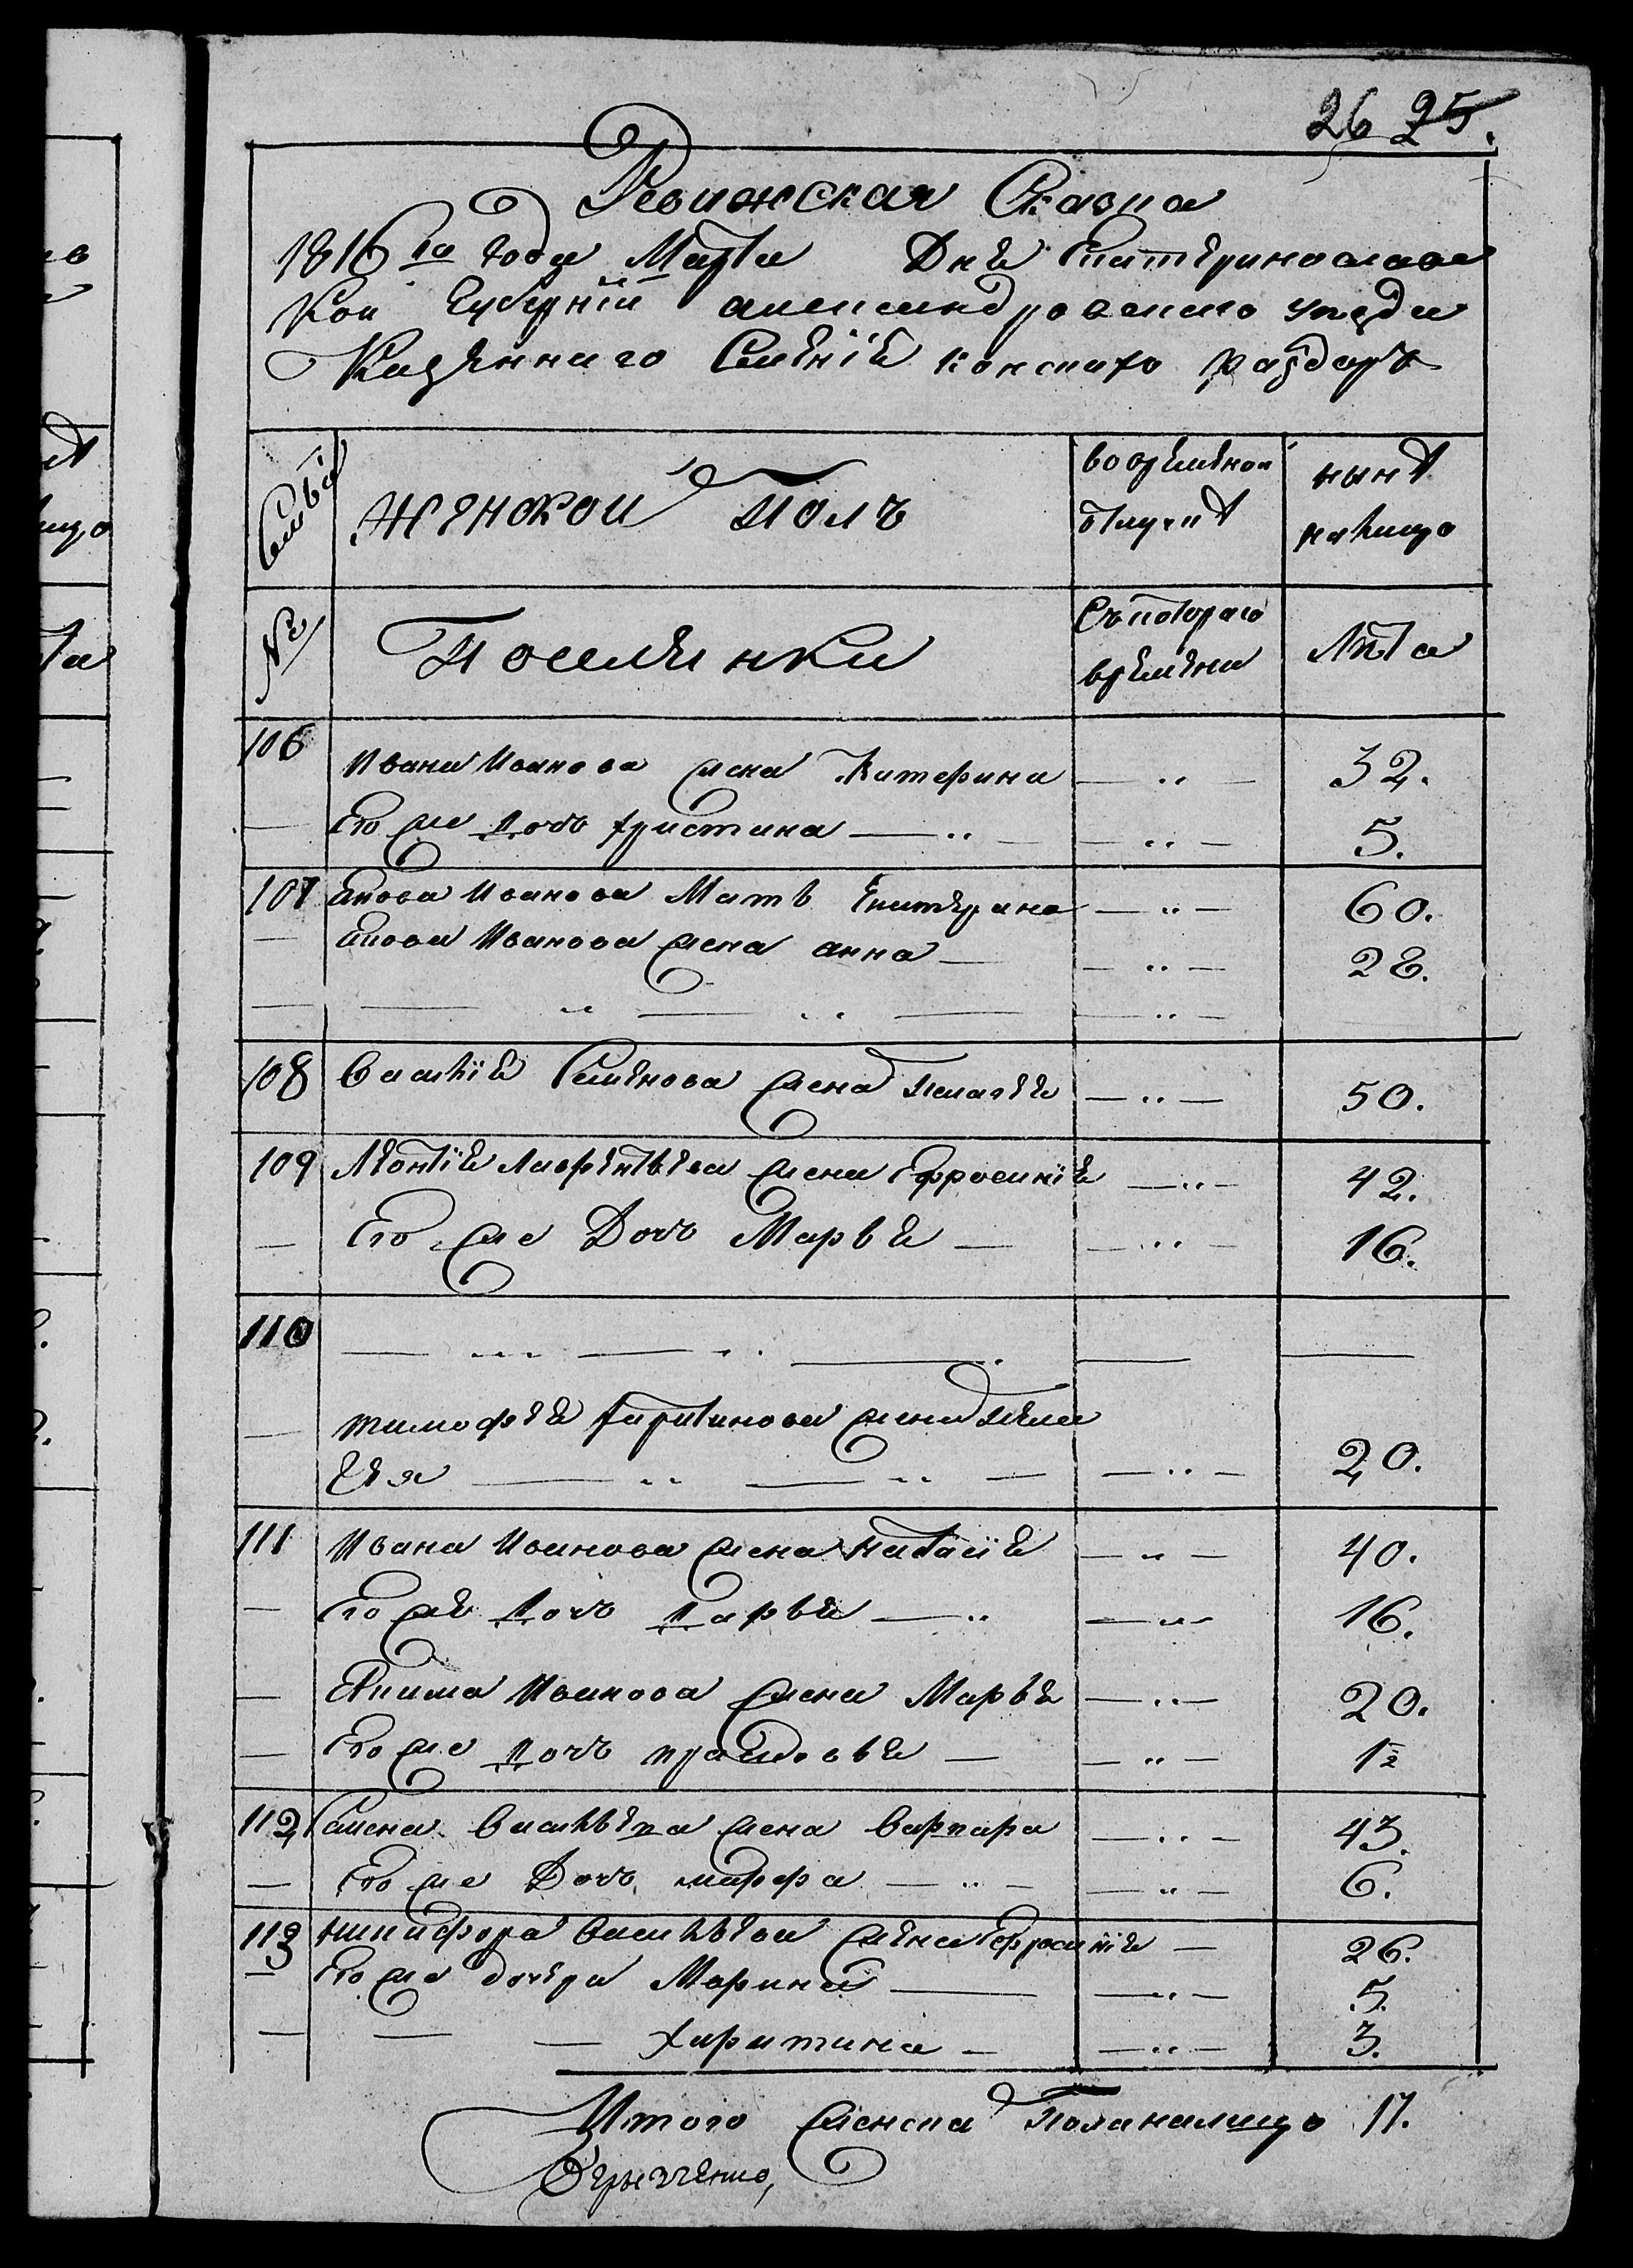 26 25.
Ревижская Сказка
1816го года Марта Дня Екатеринославс
кой губернїи александровского уезда
Казеннаго Селенїя конскихъ раздоръ
Семьи
женской полъ
вовременной
отлучке
ныне
налицо
№
Поселянки
Съкотораго
времени
лета
106 Ивана Иванова жена Катерина — „ — 32.
— Его же дочь христина — „ — — „ — 5.
107 Якова Иванова Мать Екатерина — „ — 60.
— Якова Иванова жена анна — — „ — 28.
— — „ — „ — — „ —
108 Василїя Семенова жена Пелагея — „ — 50.
109 Леонтїя Лаврентьева жена Ефросинїя — „ — 42.
— Его же Дочь Марья — — „ — 16.
110 — „ — „ — „ — —
— тимофея харитинова жена Пела
гея — „ — „ — — „ — 20.
111 Ивана Иванова жена Настасїя — „ — 40.
— Его же дочь дарья — „ — „ — 16.
— Якима Иванова жена Марья — „ — 20.
— Его же дочь прасковья — — „ — 1½
112 Семена Васильева жена варвара — „ — 43.
— Его же Дочь марфа — „ — — „ — 6.
113 никифора Васильева жена Ефросинїя — 26.
— Его же дочери Марина — — „ — 5.
— — — харитина — — „ — 3.
Итого женска Пола налицо 17.